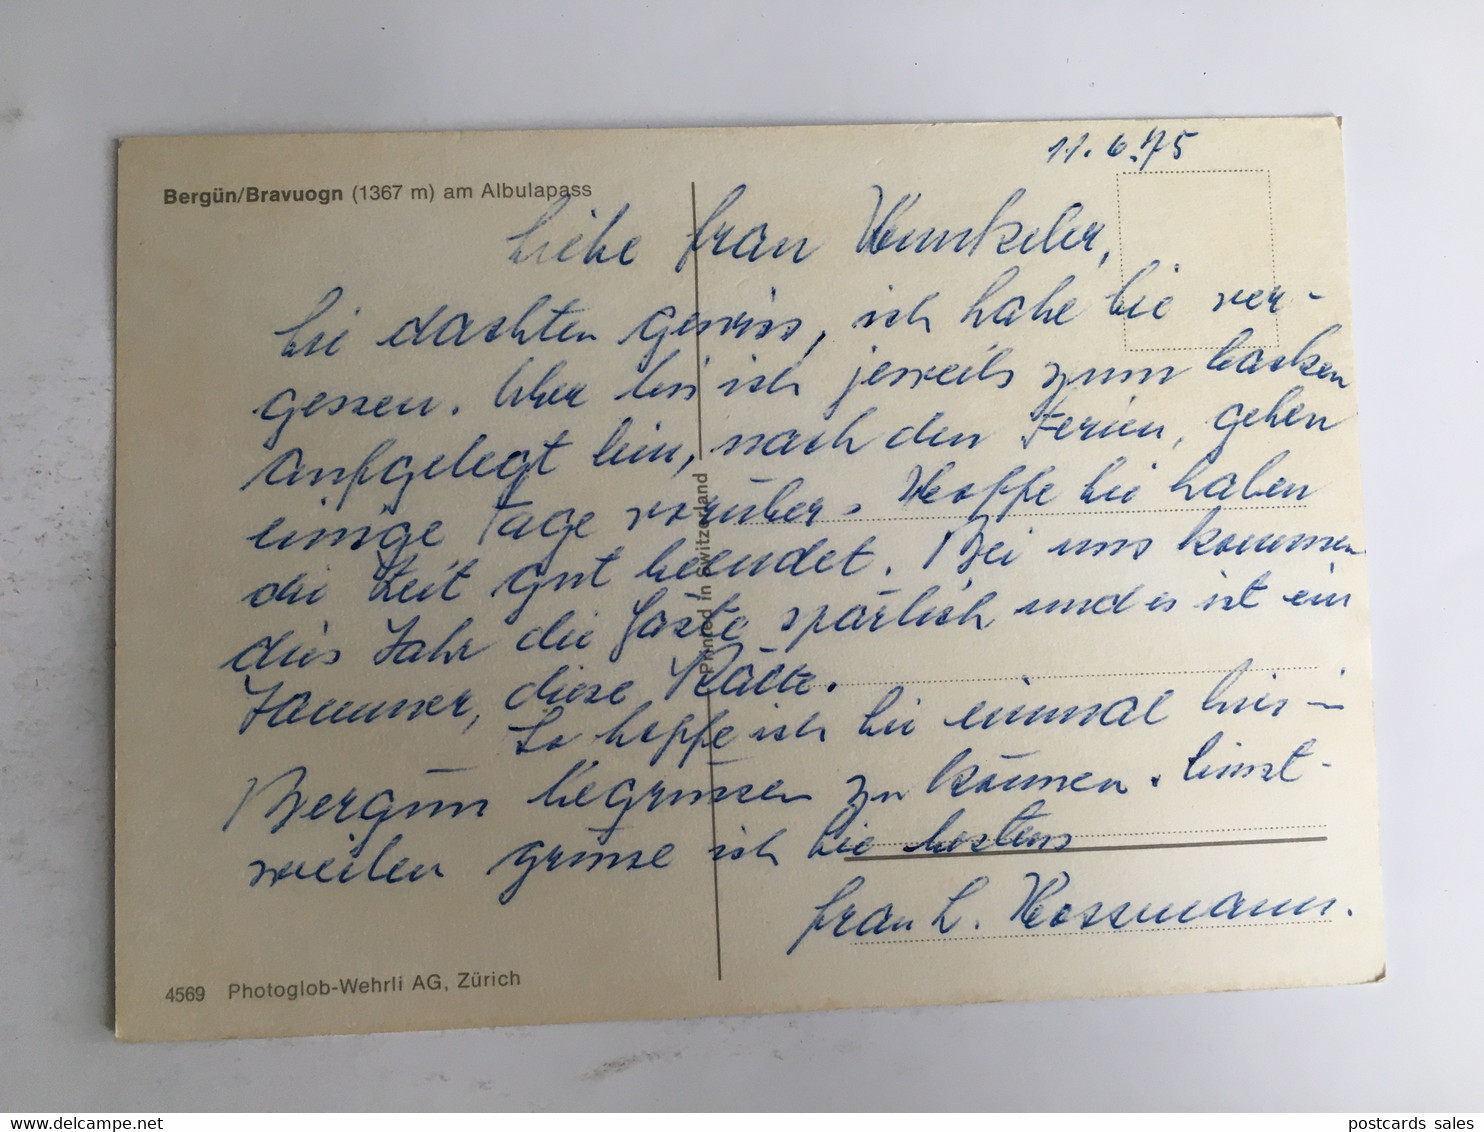 11.6.75
Bergün/Bravuogn (1367 m) am Albulapass
Liebe Frau Hunkeler,
Sie dachten gewiss, ich habe Sie ver-
gessen. Aber bis ich jeweils zum backen
aufgelegt bin, nach den Ferien, gehen
einige Tage vorüber. Hoffe Sie haben
die Zeit gut beendet. Bei uns kommen
dies Jahr die Gäste spärlich und es ist ein
Jammer, diese Kälte.
So hoffe ich Sie einmal hier in
Bergün begrüssen zu können. Einst-
weilen grüsse ich Sie bestens
Frau L. Hossmann.
Printed in Switzerland
4569 Photoglob-Wehrli AG, Zürich
postcards sales